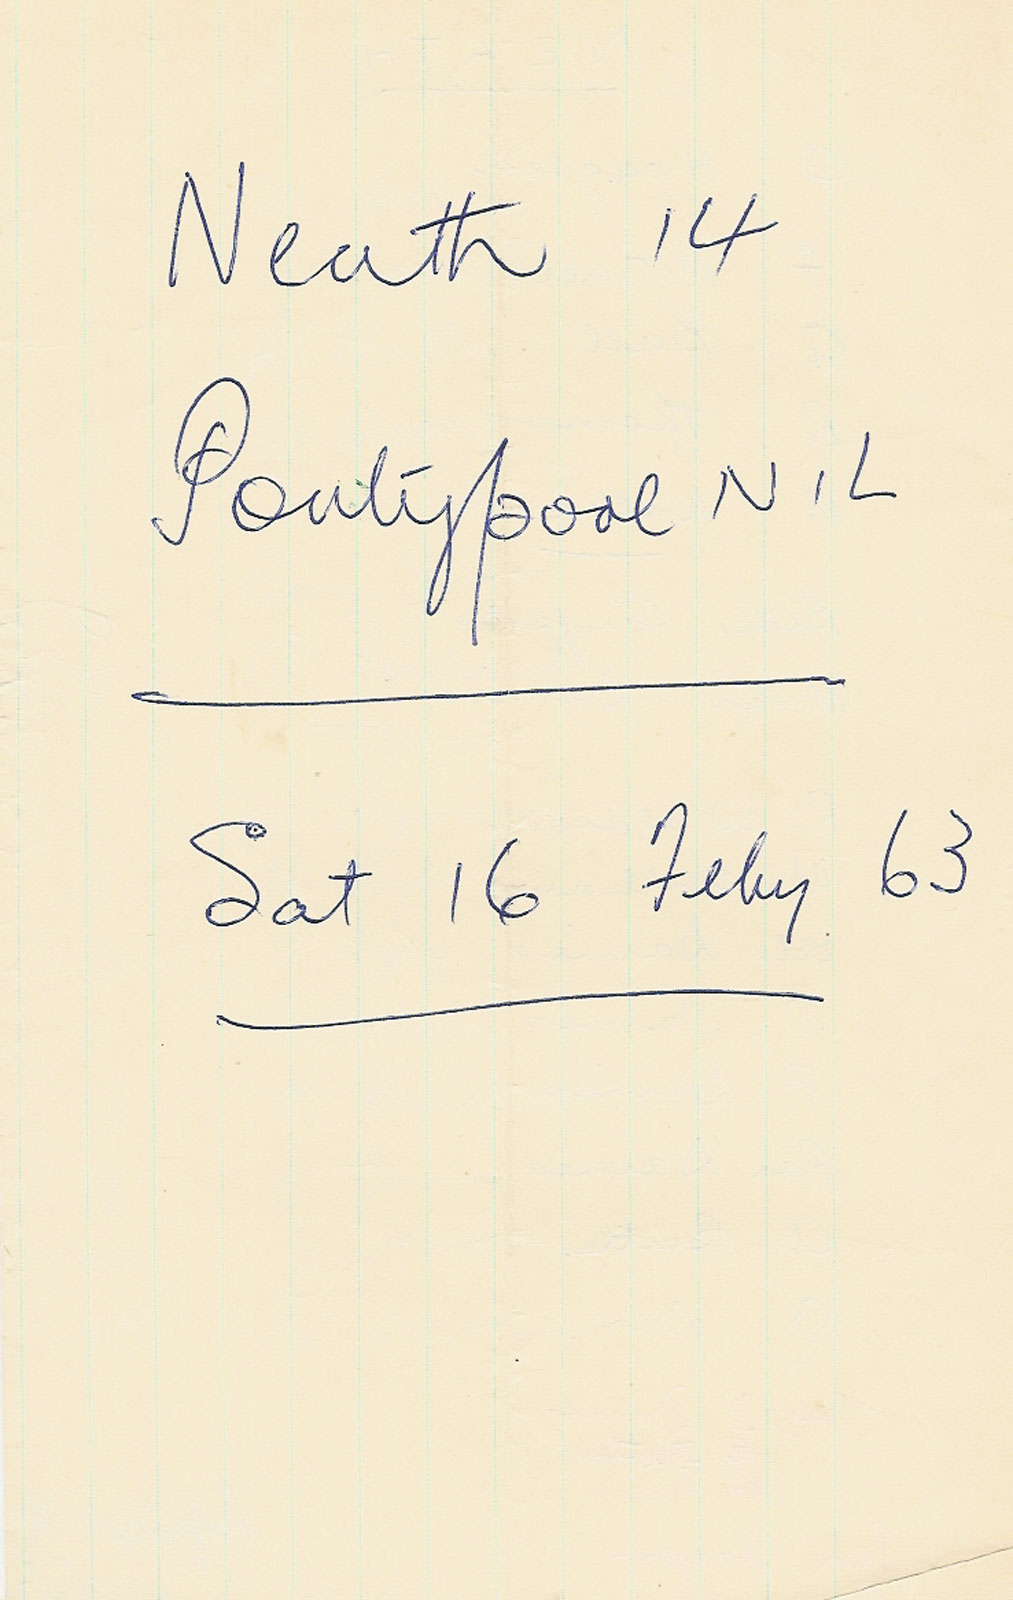 Neath 14
Pontypool NIL
Sat 16 Feby 63